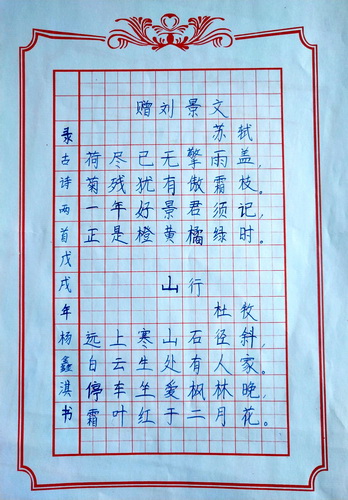 赠刘景文
苏轼
荷尽已无擎雨盖，
菊残犹有傲霜枝。
一年好景君须记，
正是橙黄橘绿时。
山行
杜牧
远上寒山石径斜，
白云生处有人家。
停车坐爱枫林晚，
霜叶红于二月花。
录古诗两首戊戌年杨鑫淇书